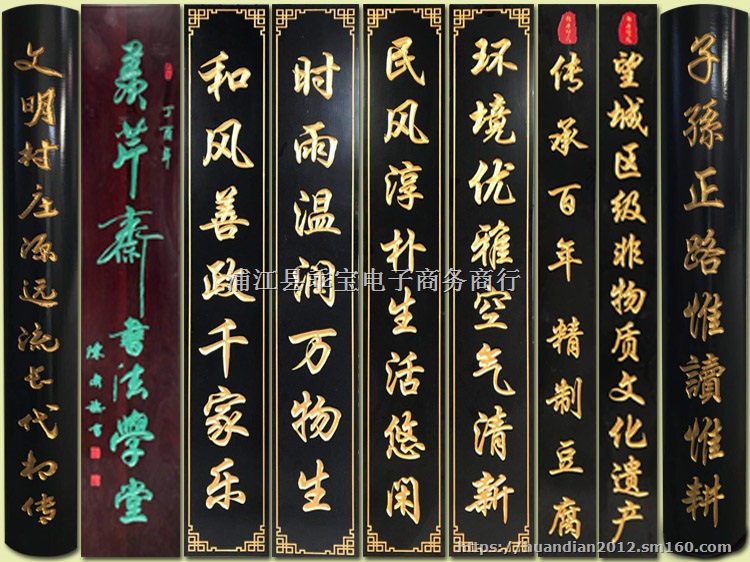 文明村庄源远流长代相传
丁酉年
羡芹齋書法學堂
和风善政千家乐
时雨温润万物生
民风淳朴生活悠闲
环境优雅空气清新
传承百年精制豆腐
望城区级非物质文化遗产
子孫正路惟讀惟耕
浦江县乖宝电子商务商行
https://zhuandian2012.sm160.com